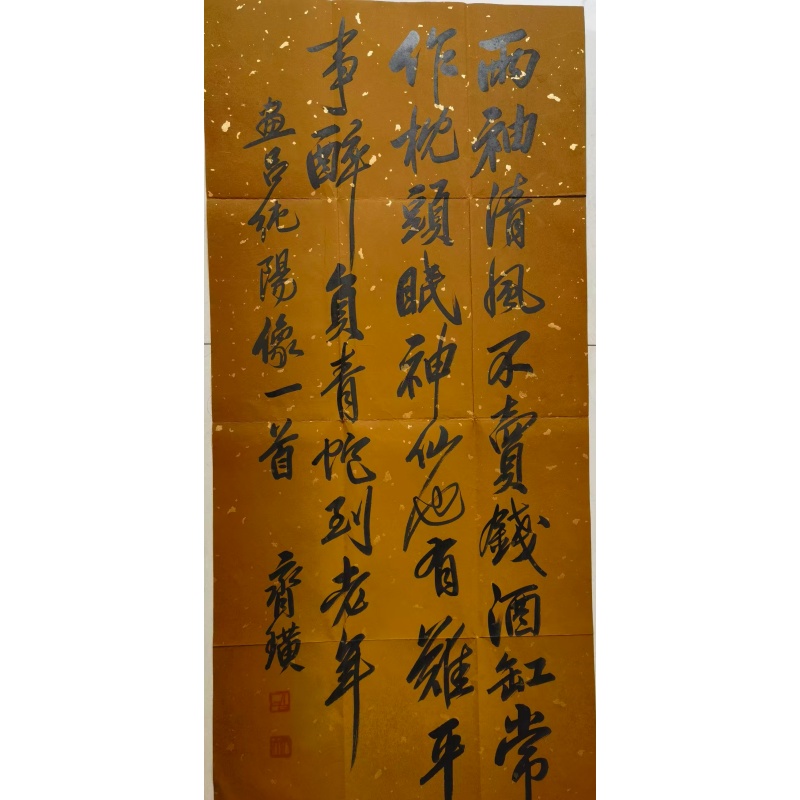 兩袖清風不賣錢酒缸常
作枕頭眠神仙也有難平
事醉負青蛇到老年
畫呂純陽像一首
齊璜